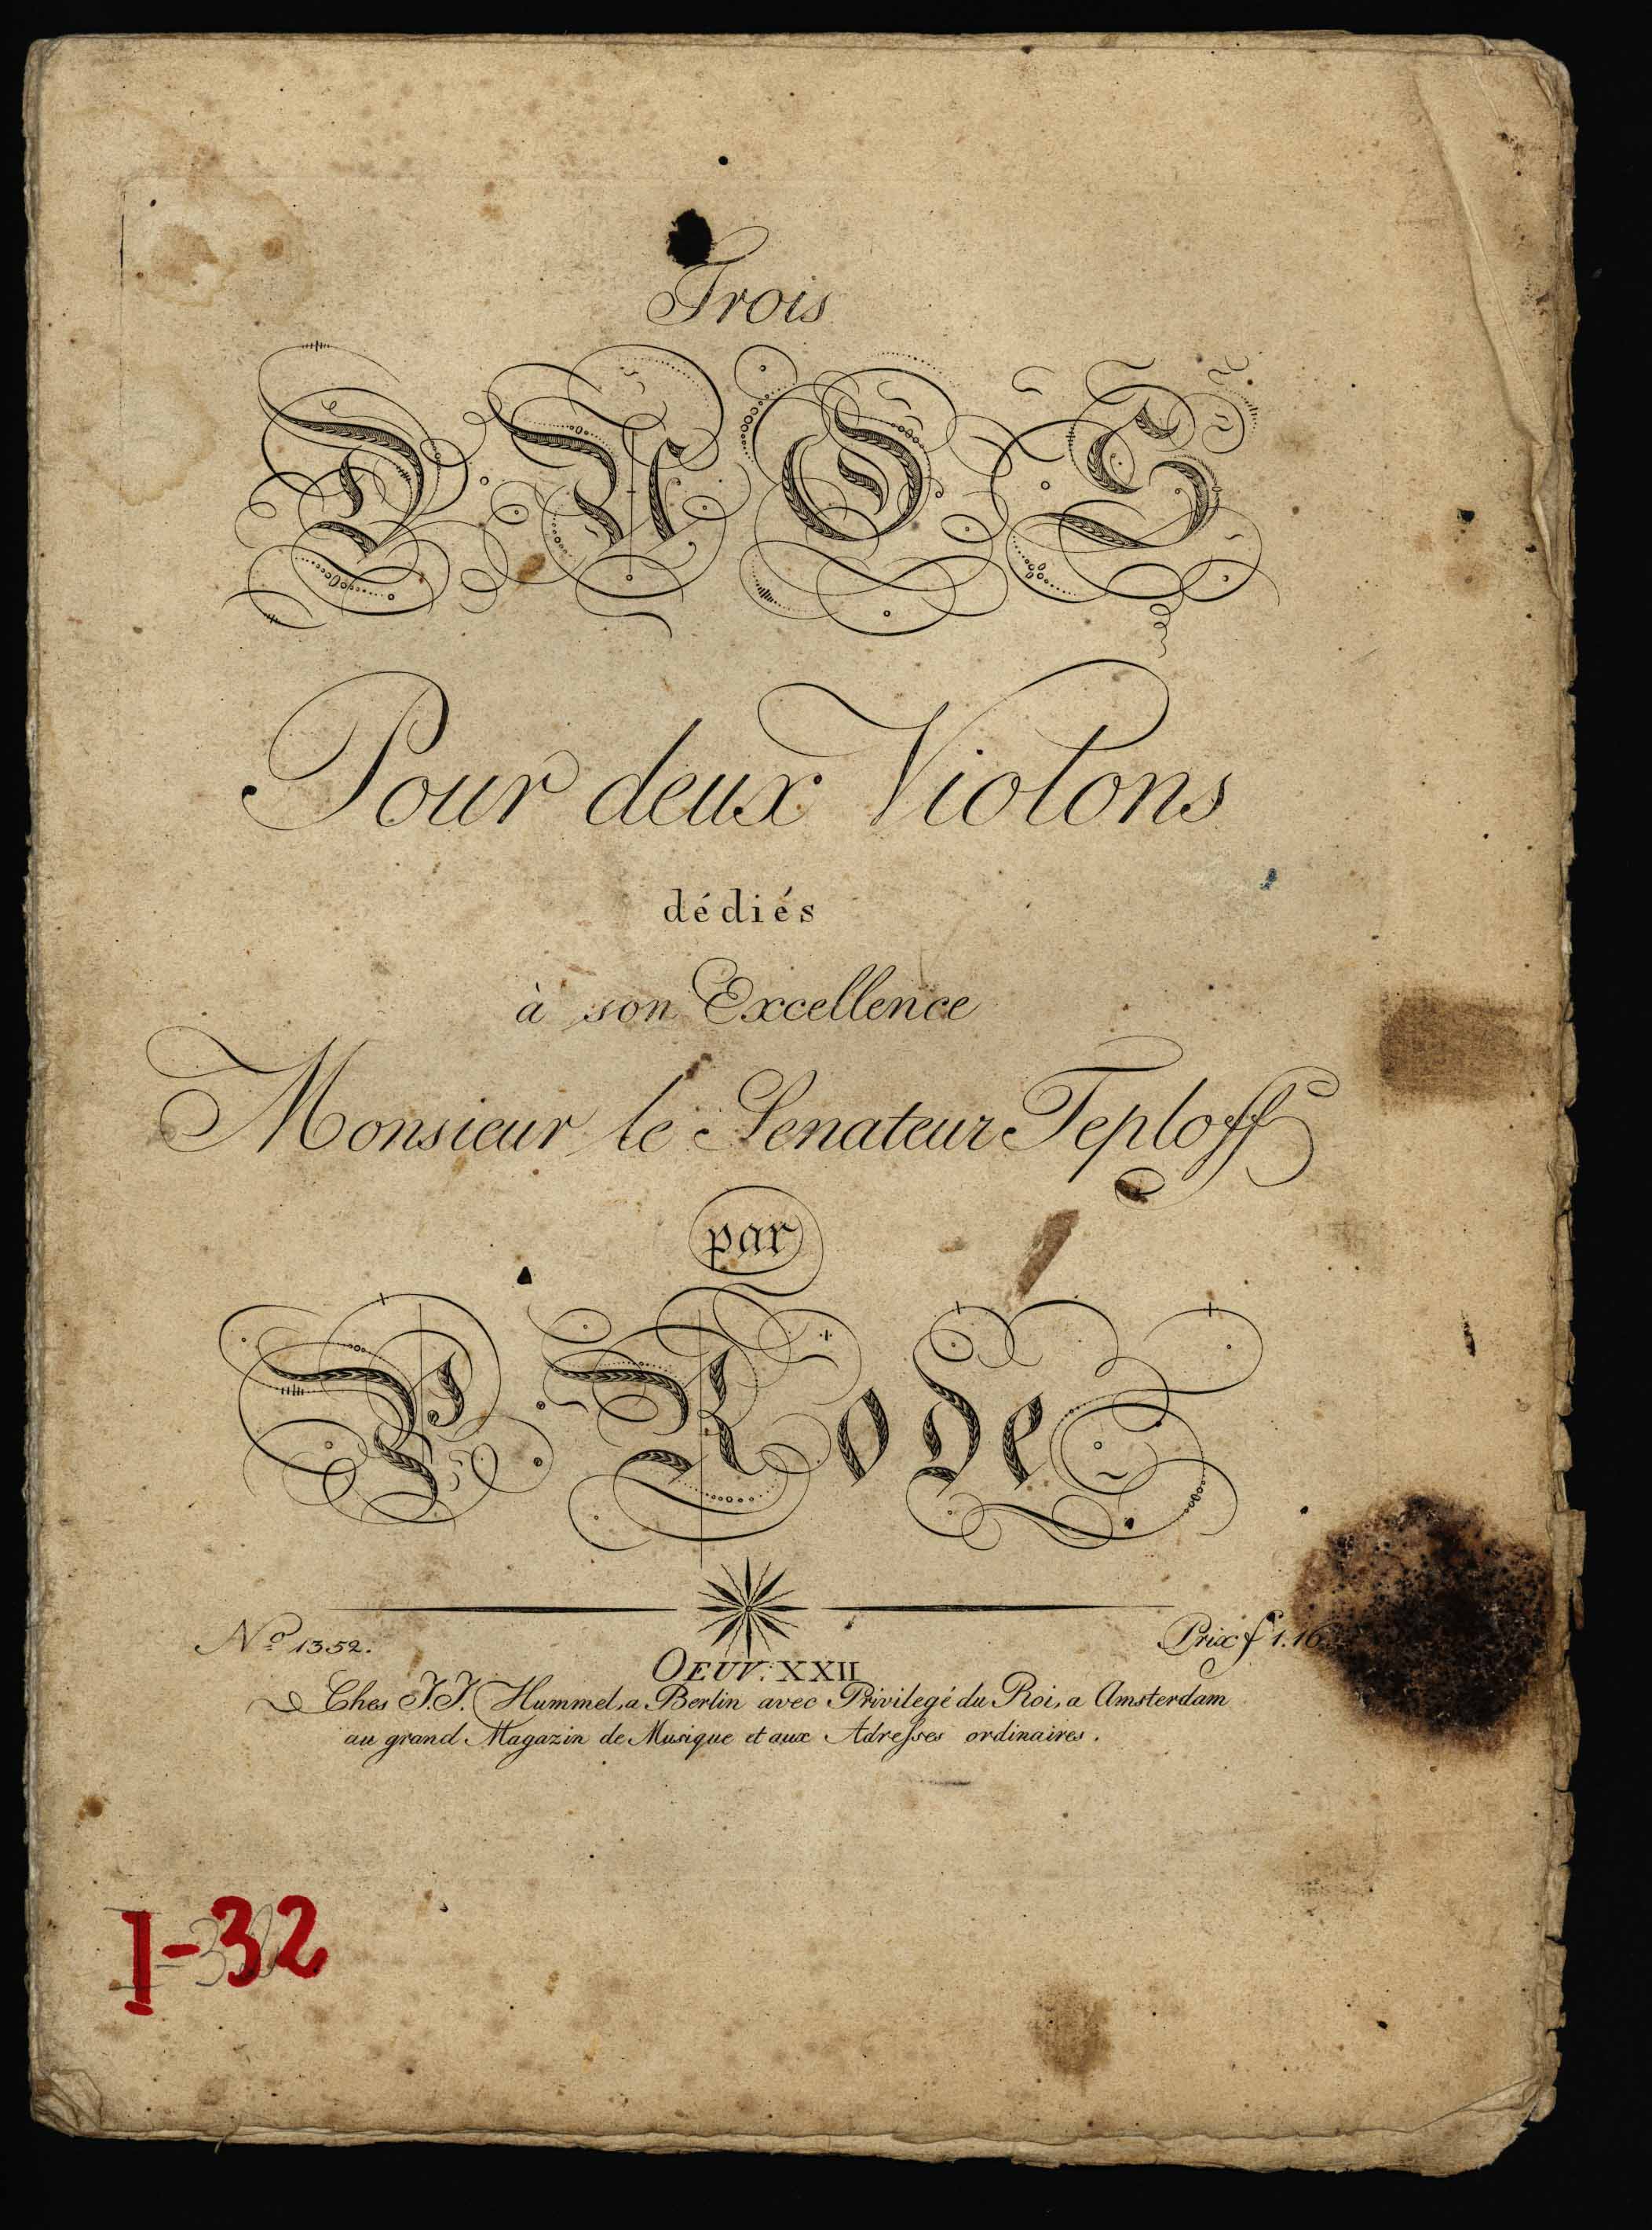 Trois
DUOS
Pour deux Violons
dédiés
à son Excellence
Monsieur le Senateur Teploff
par
P. Rode
No 1352.
Prix f 1.16
OEUV. XXII
Ches J.J. Hummel, a Berlin avec Privilegé du Roi, a Amsterdam
au grand Magazin de Musique et aux Adreſses ordinaires.
I-32